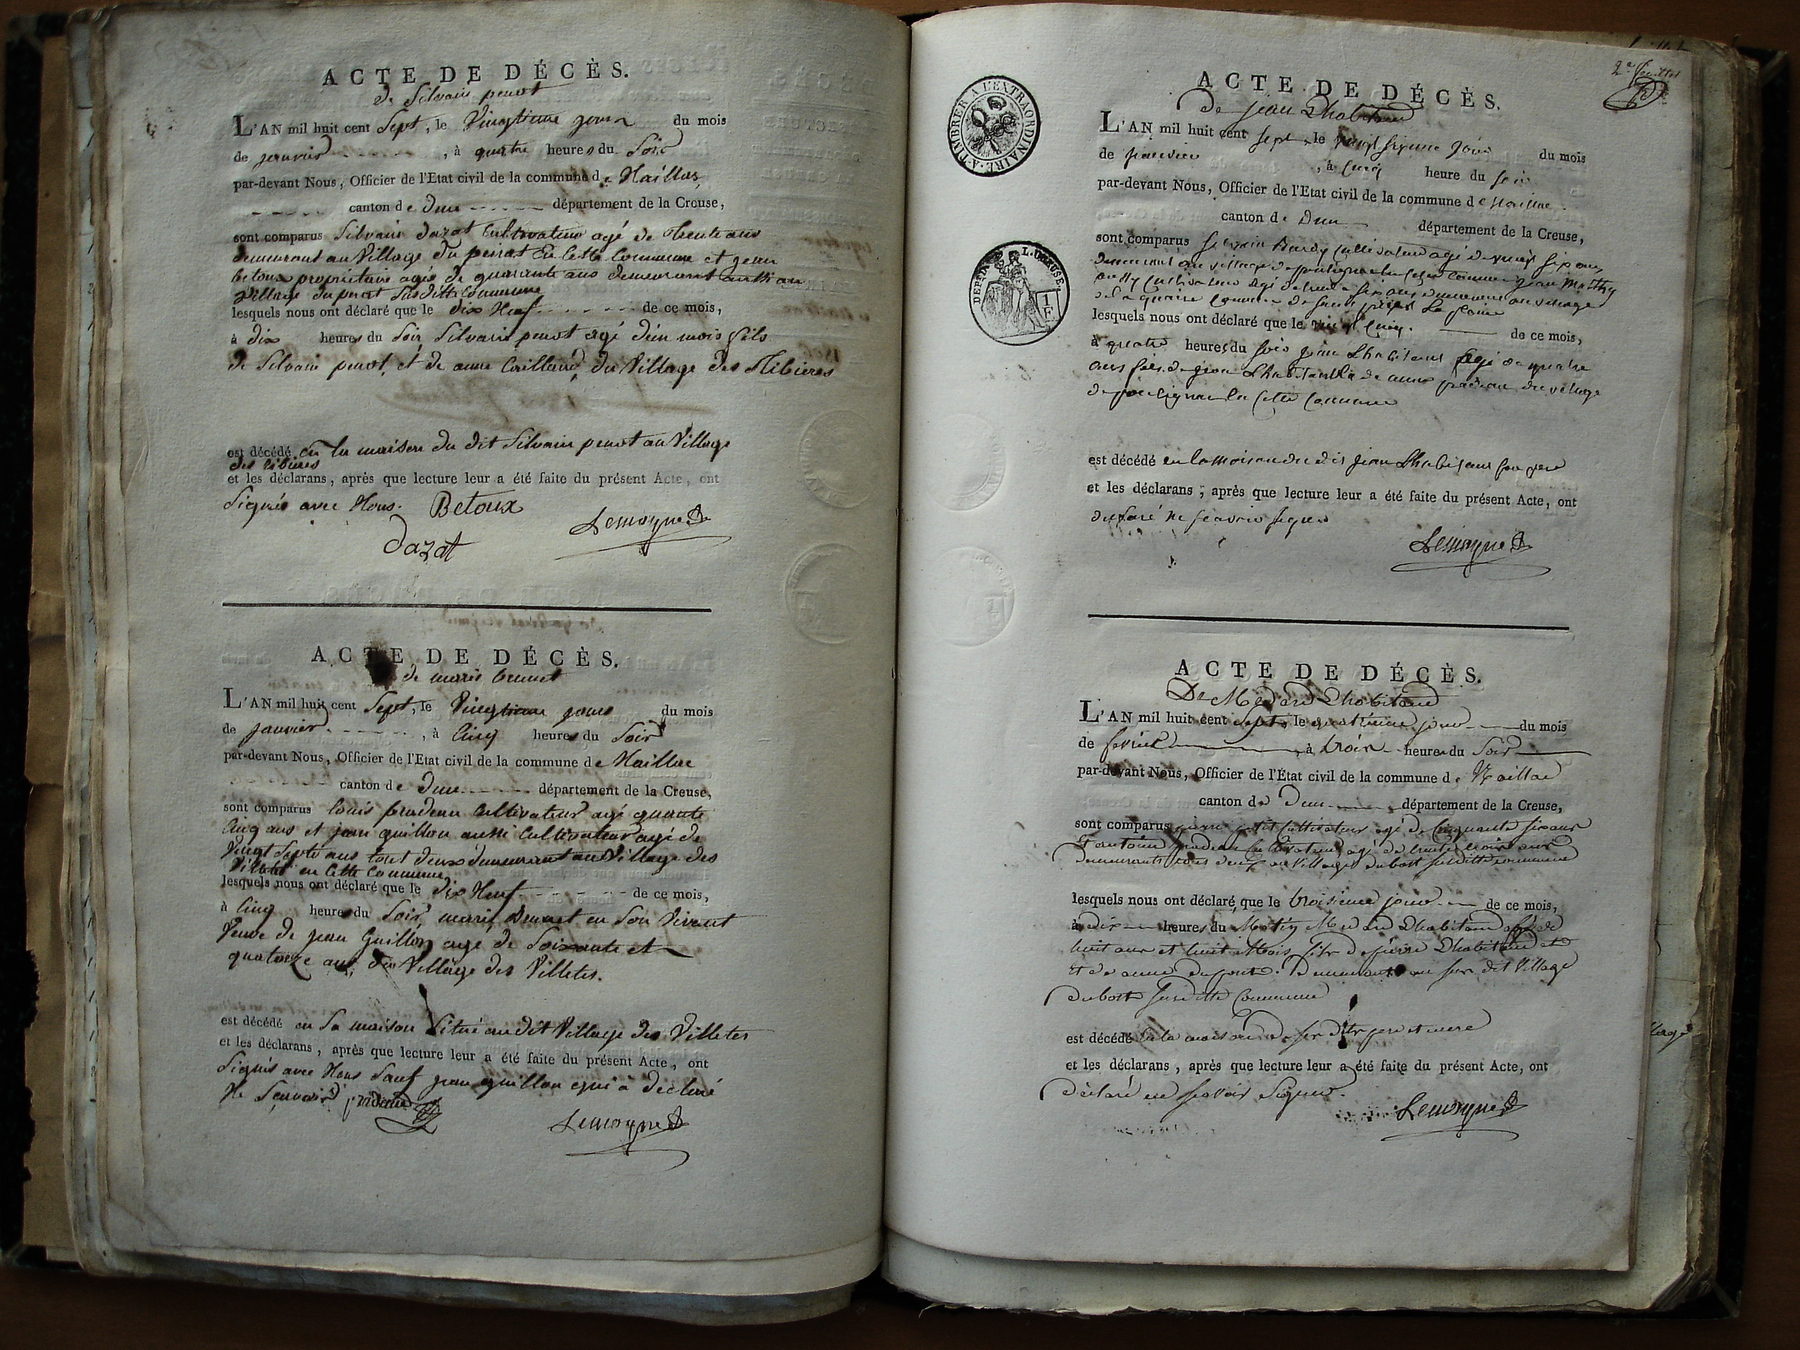 ACTE DE DÉCÈS.
de Silvain penot
L'AN mil huit cent Sept, le Vingtieme jour du mois
de janvier, à quatre heures du Soir
par-devant Nous, Officier de l'Etat civil de la commune de Naillac
canton de Dun département de la Creuse,
sont comparus Silvain dazat Cultivateur agé de trente ans
demeurant au Village du peirat En Cette Commune et jean
betoux propriétaire agée de quarante ans demeurant au
Village du perat Susditte Commune
lesquels nous ont déclaré que le dix Neuf de ce mois,
à dix heures du Soir Silvain penot agé d'un mois fils
de Silvain penot et de anne Caillaud du Village des
est décédé en la maison du dit Silvain penot au Village
des
et les déclarans, après que lecture leur a été faite du présent Acte, ont
Signés avec Nous. Betoux
Lemoyne
Dazat
ACTE DE DÉCÈS.
de marie brunet
L'AN mil huit cent Sept, le Vingtieme jour du mois
de janvier, à Cinq heures du Soir
par-devant Nous, Officier de l'Etat civil de la commune de Naillac
canton de Dun département de la Creuse,
sont comparus louis pradeau Cultivateur agé quarante
Cinq ans et jean guillon aussi Cultivateur agé de
Vingt Septs ans tout deux demeurant au Village des
Villetes en Cette Commune
lesquels nous ont déclaré que le dix Neuf de ce mois,
à Cinq heures du Soir marie Brunet en Son Vivent
Veuve de jean Guillon age de Soixante et
quatorze ans du Village des Villetes.
est décédé en Sa maison Situé au dit Village des Villetes
et les déclarans, après que lecture leur a été faite du présent Acte, ont
Signés avec Nous Sauf jean guillon qui a declaré
Ne Scavoir pradeau
Lemoyne
2e feuillet
TIMBRER A L'EXTRAORDINAIRE
DEPART. DE LA CREUSE
ACTE DE DÉCÈS.
de jean Lhabitand
L'AN mil huit cent sept, le vingt sixieme jour du mois
de janvier, à Cinq heure du soir
par-devant Nous, Officier de l'Etat civil de la commune de Naillac
canton de Dun département de la Creuse,
sont comparus Silvain Bardy Cultivateur agé de vingt six ans,
demeurant au village de en Cette Commune jean
aussy Cultivateur agé de trente six ans demeurant au village
de la Commune de
lesquels nous ont déclaré que le vingt Cinq de ce mois,
à quatre heures du soir jean Lhabitant agé de quatre
ans fils de jean Lhabitant et de anne pradeau du village
de en Cette Commune
est décédé en la Maison du dit jean Lhabitant son pere
et les déclarans, après que lecture leur a été faite du présent Acte, ont
declaré ne scavoir signer
Lemoyne
ACTE DE DÉCÈS.
De Medard Lhabitand
L'AN mil huit cent Sept, le quatrieme jour du mois
de fevrier à trois heures du Soir
par-devant Nous, Officier de l'État civil de la commune de Naillac
canton de Dun département de la Creuse,
sont comparus pierre petit Cultivateur agé de Cinquante six ans
Et antoine pradeau Cultivateur agé de trente trois ans
demeurants tous deux au Village du bost susditte Commune
lesquels nous ont déclaré que le troisieme jour de ce mois,
à dix heures du Matin Medard Lhabitand agé de
huit ans et huit Mois fils de pierre Lhabitand et
Et de anne dupont. demeurant au sus dit Village
du bost susditte Commune
est décédé En la maison de ses dits pere et mere
et les déclarans, après que lecture leur a été faite du présent Acte, ont
déclaré ne scavoir Signer.
Lemoyne